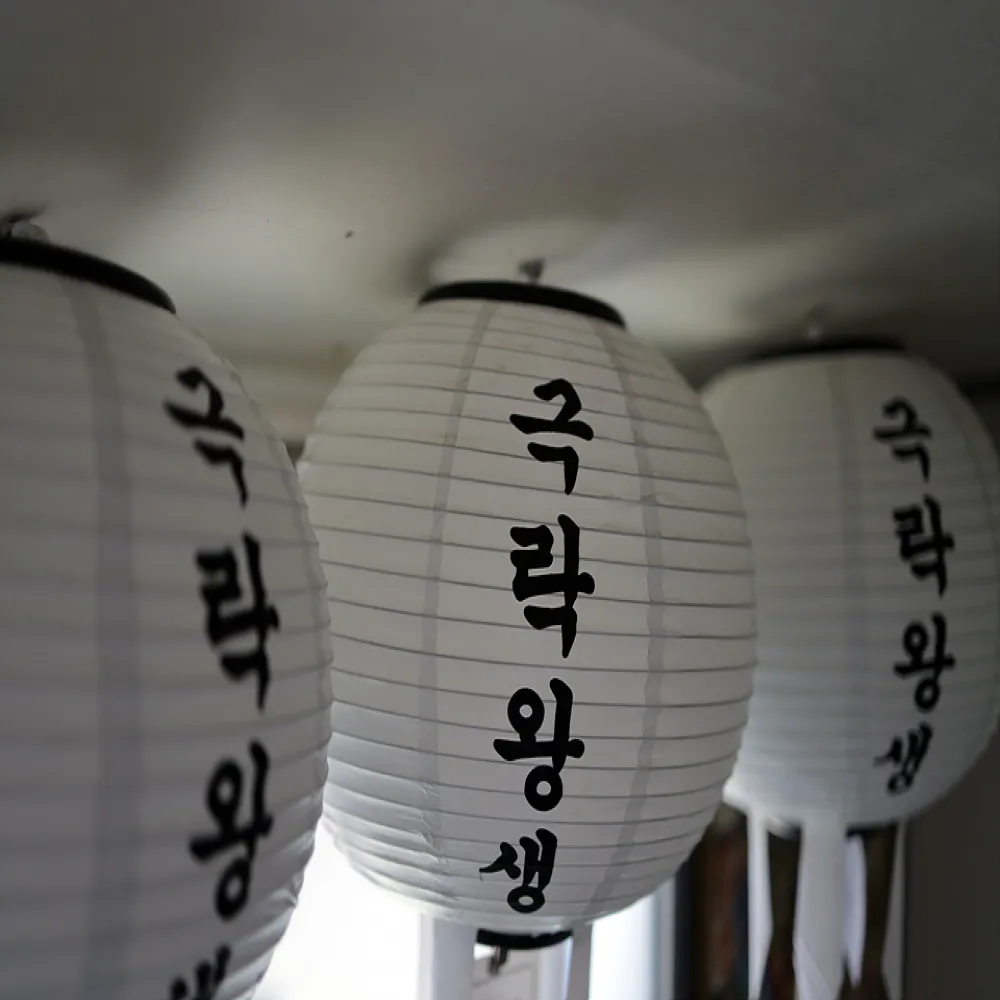 극락왕생
극락왕생
극락왕생